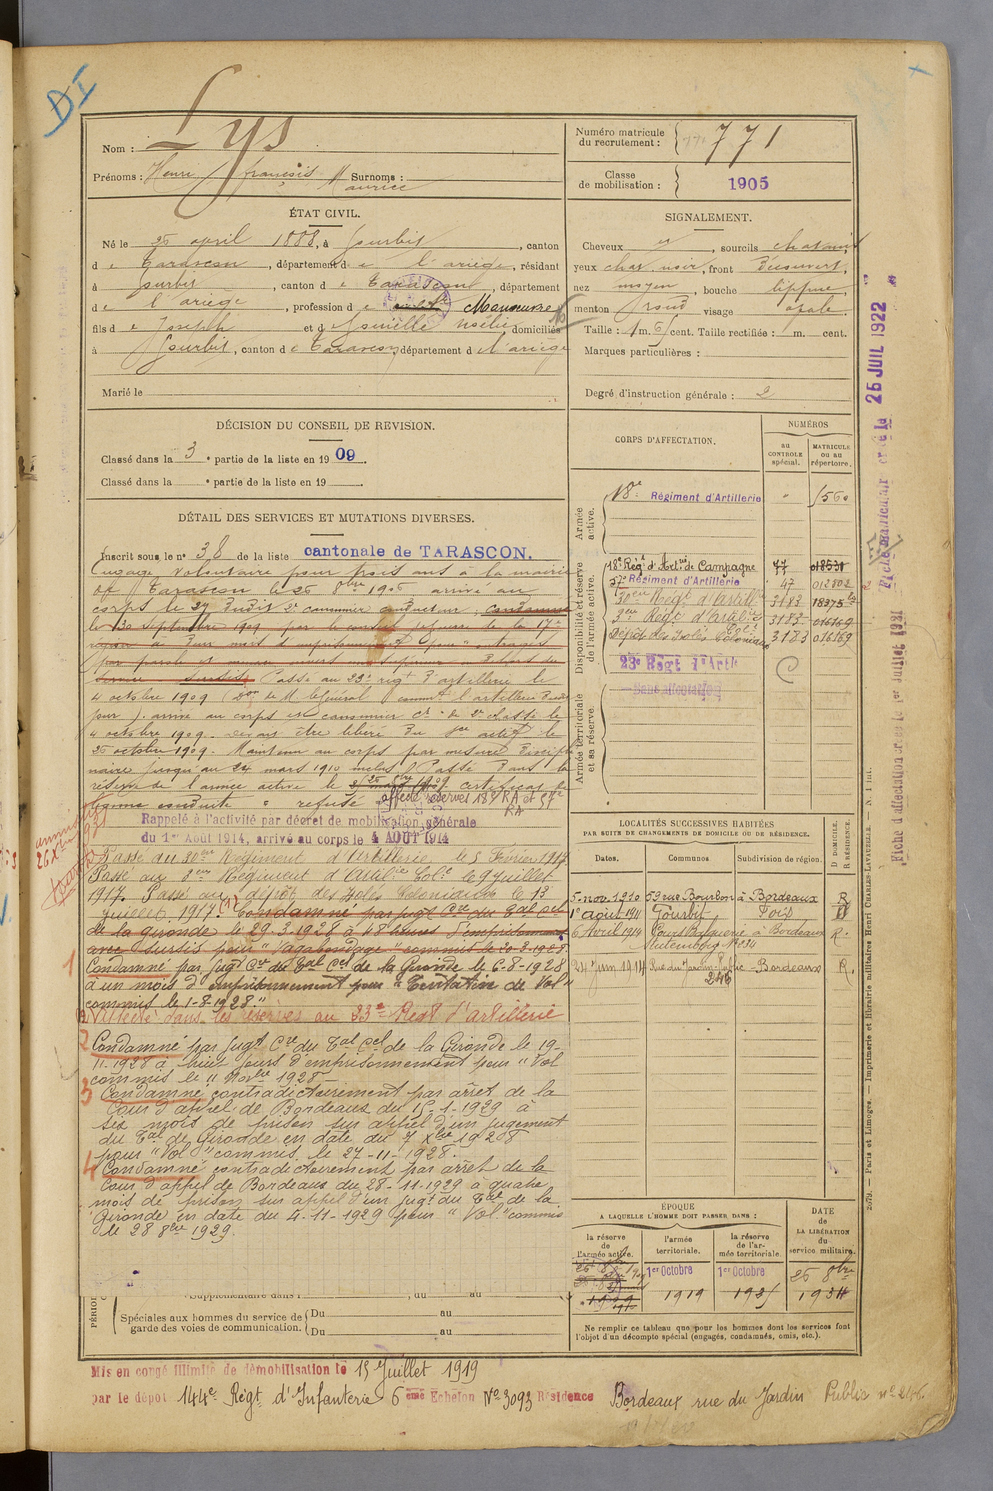 DI
Nom : Lys
Prénoms : Henri françois Maurice Surnoms :
Numéro matricule du recrutement : 771
Classe de mobilisation : 1905
ÉTAT CIVIL.
Né le 25 april 1888, à Gourbit, canton
d e Tarascon, département d e l'ariège, résidant
à Gourbit, canton d e Tarascon, département
d e l'ariège, profession d e Manoeuvre
fils d e Joseph et d domiciliés
à Gourbit, canton d e Tarascon, département d e l'ariège
Marié le
SIGNALEMENT.
Cheveux et, sourcils chatain
yeux chat. noir, front Découvert,
nez moyen, bouche
menton rond visage ovale.
Taille : 1 m. 6 cent. Taille rectifiée : m. cent.
Marques particulières :
Degré d'instruction générale : 2
DÉCISION DU CONSEIL DE REVISION.
Classé dans la 3e partie de la liste en 1909.
Classé dans la e partie de la liste en 19
DÉTAIL DES SERVICES ET MUTATIONS DIVERSES.
Inscrit sous le n° 38 de la liste cantonale de TARASCON.
Engagé volontaire pour trois ans à la mairie
de Tarascon le 25 8bre 1906 arrivé au
corps le 27 dudit 2e canonnier conducteur, Condamné
le 30 septembre 1909 par le conseil de guerre de la 17e
région à deux mois d'emprisonnement pour outrages
par parole et
Passé au 23e régt d'artillerie le
4 octobre 1909
jour). arrivé au corps et canonnier ct de 2e classe le
4 octobre 1909. Devait être libéré du sce actif le
25 octobre 1909. Maintenu au corps par mesure discipli
naire jusqu'au 24 mars 1910 inclus. Passé dans la
réserve de l'armée active le 25 mars 1909 certificat de
bonne conduite "refusé"
affecté réserves 18e RA et 57e
RA
Rappelé à l'activité par décret de mobilisation générale
du 1er Août 1914, arrivé au corps le 4 AOÛT 1914
Passé au 30ème Régiment d'Artillerie le 5 Février 1917
Passé au 3eme Régiment d'Artie Colle le 9 juillet
1917. Passé au dépôt des Isolés Coloniaux le 13
juillet 1917. (1) Condamné par jugt Cre du Tal Cel
de la Gironde le 29.3.1928 à 48 heures d'emprisonnement
avec sursis pour "Vagabondage" commis le 20-3-1928.
1 Condamné par Jugt Cre du Tal Cel de la Gironde le 6-8-1928
à un mois d'emprisonnement pour "Tentative de Vol"
commis le 1-8-1928."
Affecté dans les réserves au 23e Régt d'artillerie
2 Condamné par Jugt Cre du Tal Cel de la Gironde le 19-
11-1928 à huit jours d'emprisonnement pour "Vol
commis le " Novbre 1928
3 Condamné contradictoirement par arrêt de la
Cour d'appel de Bordeaux du 15-1-1929 à
six mois de prison sur appel d'un jugement
du Tal de Gironde en date du 7 Xbre 1928
pour "Vol" commis le 27-11-1928.
4 Condamné contradictoirement par arrêt de la
Cour d'appel de Bordeaux du 28-11-1929 à quatre
mois de prison sur appel d'un jugt du Tal de la
Gironde en date du 4-11-1929 pour "Vol" commis
le 28 8bre 1929.
CORPS D'AFFECTATION.
NUMÉROS
au CONTROLE spécial.
MATRICULE ou au répertoire.
Armée active.
18e Régiment d'Artillerie " 1560
Disponibilité et réserve de l'armée active.
18e Régt d'Artrie de Campagne 77 01853
57e Régiment d'Artillerie 47 01280
30eme Régt d'artillie 3183 18375
3eme Régt d'artie Cole 3183 016169
Dépôt des Isolés Coloniaux 3183 016169
23e Régt d'Artie
Sans Affectation
Armée territoriale et sa réserve.
LOCALITÉS SUCCESSIVES HABITÉES
PAR SUITE DE CHANGEMENTS DE DOMICILE OU DE RÉSIDENCE.
Dates. Communes Subdivision de région. D DOMICILE. R RÉSIDENCE.
5. nov. 1910 59 rue Bourbon à Bordeaux R
1er août 1911 Gourbit Foix D
6 Avril 1914 à Bordeaux R.
24 juin 1914 Rue du Jardin Public Bordeaux R.
246
ÉPOQUE
A LAQUELLE L'HOMME DOIT PASSER DANS :
la réserve de l'armée active.
l'armée territoriale.
la réserve de l'armée territoriale.
DATE de LA LIBÉRATION du service militaire.
1er Octobre 1919
1er Octobre 1925
25 8bre 1934
Ne remplir ce tableau que pour les hommes dont les services font
l'objet d'un décompte spécial (engagés, condamnés, omis, etc.).
Supplémentaire dans l , du au
Spéciales aux hommes du service de garde des voies de communication. Du au
Du au
Mis en congé illimité de démobilisation le 15 Juillet 1919
par le dépôt 144e Régt d'Infanterie 6ème Echelon No 3093 Résidence Bordeaux rue du Jardin Public no 246
Fiche matriculaire créée le 25 JUIL 1922
Fiche d'affectation créée le 1er Juillet 1921
Paris et Limoges. — Imprimerie et librairie militaires Henri Charles-Lavauzelle.